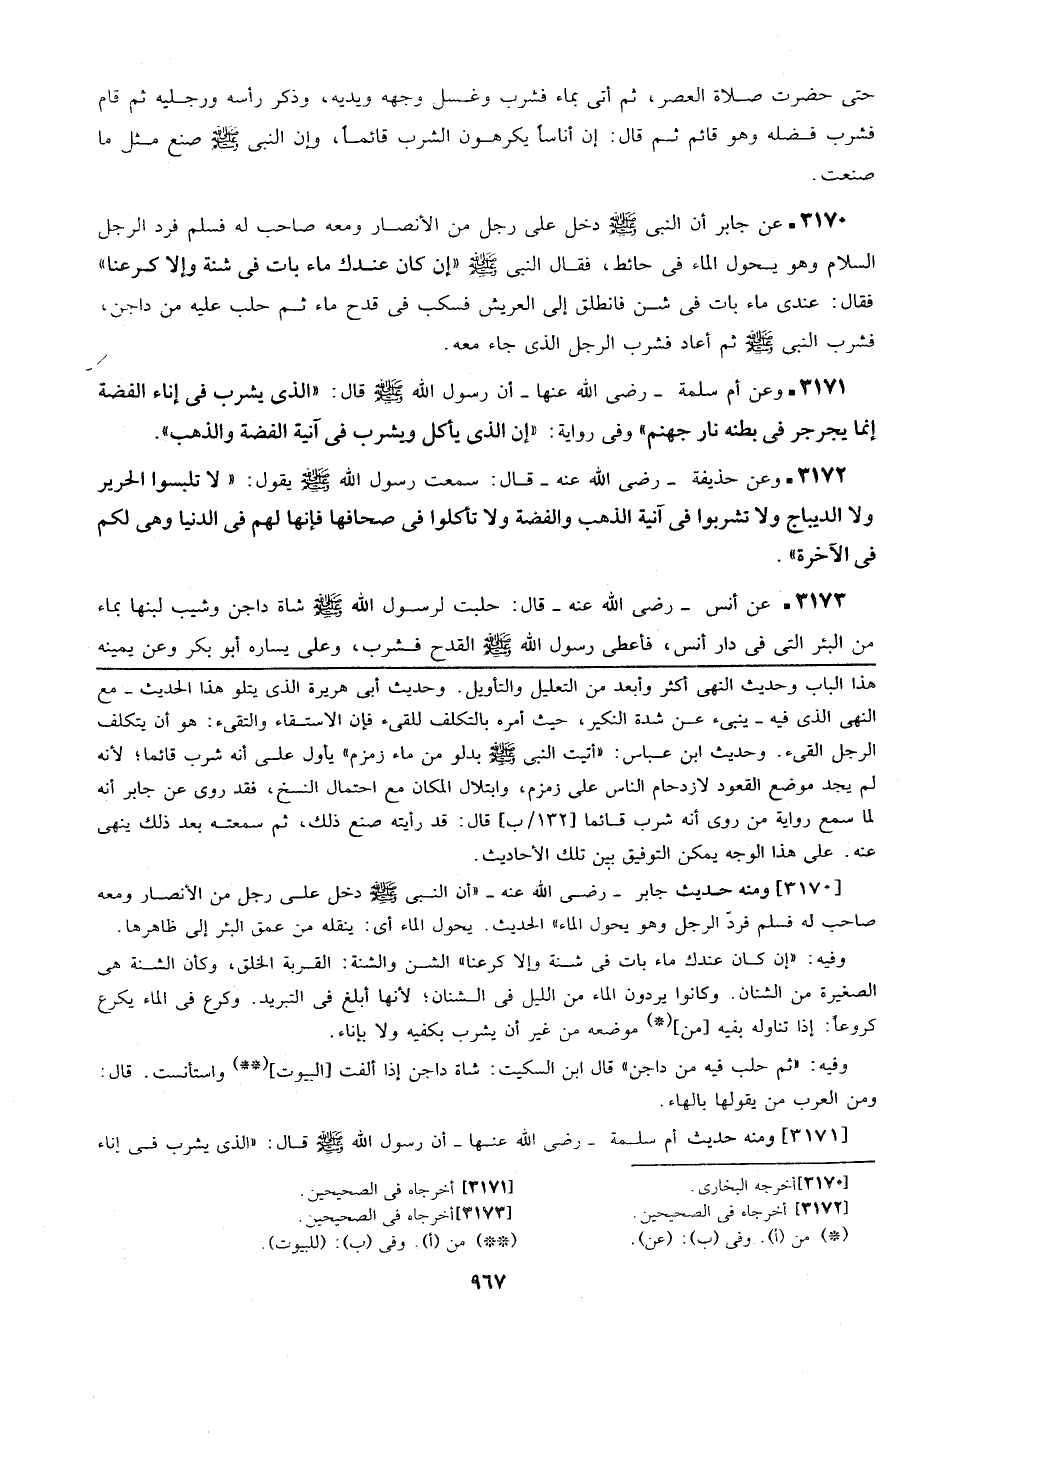 حتى حضرت صلاة العصر، ثم أتى بماء فشرب وغسل وجهه ويديه، وذكر رأسه ورجليه ثم قام
فشرب فضله وهو قائم ثم قال: إن أناساً يكرهون الشرب قائماً، وإن النبى ﷺ صنع مثل ما
صنعت.
٣١٧٠ـ عن جابر أن النبى ﷺ دخل على رجل من الأنصار ومعه صاحب له فسلم فرد الرجل
السلام وهو يحول الماء فى حائط، فقال النبى ﷺ «إن كان عندك ماء بات فى شنة وإلا كرعنا»
فقال: عندى ماء بات فى شن فانطلق إلى العريش فسكب فى قدح ماء ثم حلب عليه من داجن،
فشرب النبى ﷺ ثم أعاد فشرب الرجل الذى جاء معه.
٣١٧١ـ وعن أم سلمة ـ رضى الله عنها ـ أن رسول الله ﷺ قال: «الذى يشرب فى إناء الفضة
إنما يجرجر فى بطنه نار جهنم» وفى رواية: «إن الذى يأكل ويشرب فى آنية الفضة والذهب».
٣١٧٢ـ وعن حذيفة ـ رضى الله عنه ـ قال: سمعت رسول الله ﷺ يقول: «لا تلبسوا الحرير
ولا الديباج ولا تشربوا فى آنية الذهب والفضة ولا تأكلوا فى صحافها فإنها لهم فى الدنيا وهى لكم
فى الآخرة».
٣١٧٣ـ عن أنس ـ رضى الله عنه ـ قال: حلبت لرسول الله ﷺ شاة داجن وشيب لبنها بماء
من البئر التى فى دار أنس، فأعطى رسول الله ﷺ القدح فشرب، وعلى يساره أبو بكر وعن يمينه
هذا الباب وحديث النهى أكثر وأبعد من التعليل والتأويل. وحديث أبى هريرة الذى يتلو هذا الحديث ـ مع
النهى الذى فيه ـ ينبىء عن شدة النكير، حيث أمره بالتكلف للقىء فإن الاستقاء والتقىء: هو أن يتكلف
الرجل القىء. وحديث ابن عباس: «أتيت النبى ﷺ بدلو من ماء زمزم» يأول على أنه شرب قائما؛ لأنه
لم يجد موضع القعود لازدحام الناس على زمزم، وابتلال المكان مع احتمال النسخ، فقد روى عن جابر أنه
لما سمع رواية من روى أنه شرب قائما [١٣٢/ب] قال: قد رأيته صنع ذلك، ثم سمعته بعد ذلك ينهى
عنه. على هذا الوجه يمكن التوفيق بين تلك الأحاديث.
[٣١٧٠] ومنه حديث جابر ـ رضى الله عنه ـ «أن النبى ﷺ دخل على رجل من الأنصار ومعه
صاحب له فسلم فردّ الرجل وهو يحول الماء» الحديث. يحول الماء أى: ينقله من عمق البئر إلى ظاهرها.
وفيه: «إن كان عندك ماء بات فى شنة وإلا كرعنا» الشن والشنة: القربة الخلق، وكأن الشنة هى
الصغيرة من الشنان. وكانوا يردون الماء من الليل فى الشنان؛ لأنها أبلغ فى التبريد. وكرع فى الماء يكرع
كروعاً: إذا تناوله بفيه [من](*) موضعه من غير أن يشرب بكفيه ولا بإناء.
وفيه: «ثم حلب فيه من داجن» قال ابن السكيت: شاة داجن إذا ألفت [البيوت](**) واستأنست. قال:
ومن العرب من يقولها بالهاء.
[٣١٧١] ومنه حديث أم سلمة ـ رضى الله عنها ـ أن رسول الله ﷺ قال: «الذى يشرب فى إناء
[٣١٧٠] أخرجه البخارى.
[٣١٧١] أخرجاه فى الصحيحين.
[٣١٧٢] أخرجاه فى الصحيحين.
[٣١٧٣] أخرجاه فى الصحيحين.
(*) من (أ). وفى (ب): (عن).
(**) من (أ). وفى (ب): (للبيوت).
٩٦٧